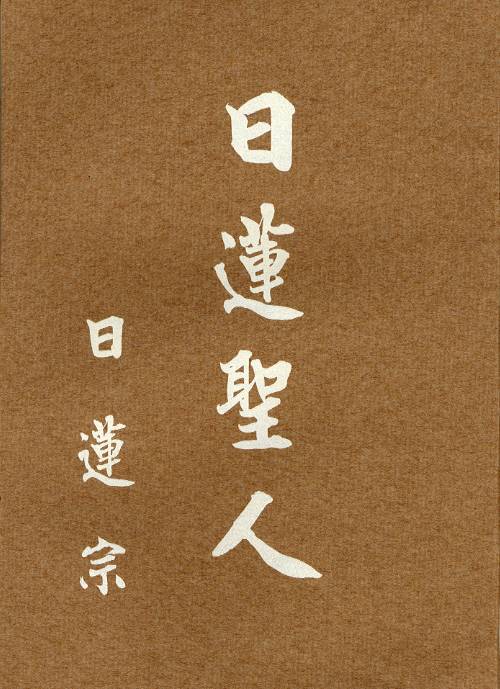 日蓮聖人
日蓮宗